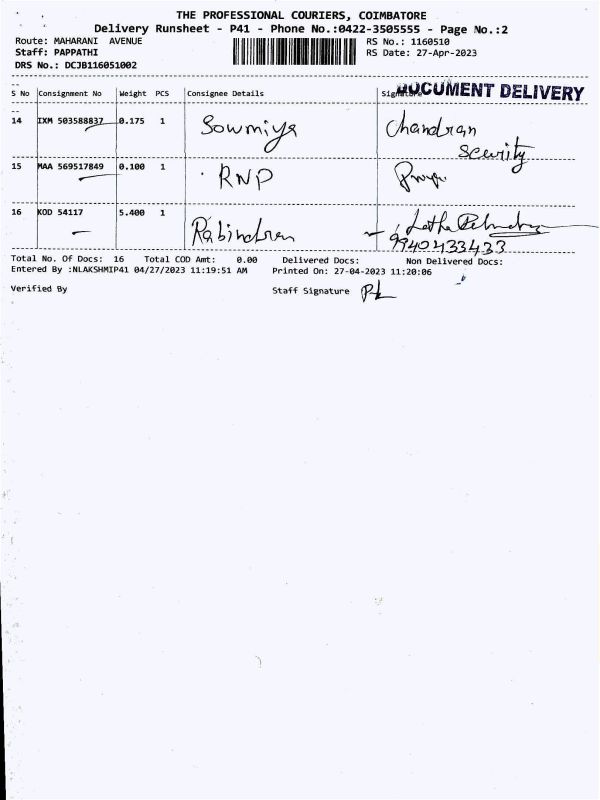 THE PROFESSIONAL COURIERS, COIMBATORE
Delivery Runsheet - P41 - Phone No.:0422-3505555 - Page No.:2
Route: MAHARANI AVENUE
RS No.: 1160510
Staff: PAPPATHI
RS Date: 27-Apr-2023
DRS No.: DCJB116051002
DOCUMENT DELIVERY
S No Consignment No Weight PCS Consignee Details
14 IXM 503588837 0.175 1 Sowmiya Chandran
Scurity
15 MAA 569517849 0.100 1 RNP
16 KOD 54117 5.400 1 Rabindran Latha
9940433433
Total No. Of Docs: 16 Total COD Amt: 0.00 Delivered Docs: Non Delivered Docs:
Entered By :NLAKSHMIP41 04/27/2023 11:19:51 AM Printed On: 27-04-2023 11:20:06
Verified By Staff Signature